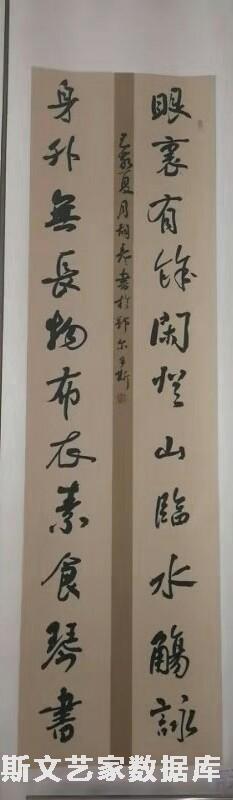 眼裏有餘閑登山臨水觴詠
己亥夏月胡書於鄂尔多斯
身外無長物布衣素食琴書
斯文艺家数据库